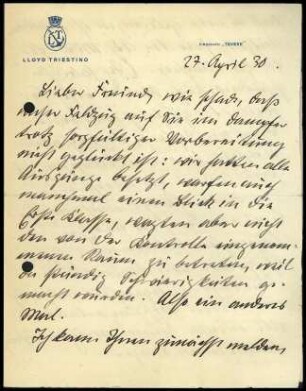 LLOYD TRIESTINO
27. April 30.
Lieber Freund, wie schade, daß
unser Feldzug auf Sie im Dampfer
trotz sorgfältiger Vorbereitung
nicht geglückt ist: wir hatten alle
Ausgänge besetzt, warfen auch
manchmal einen Blick in die
Erste Klasse, wagten aber nicht
den von der Kontrolle eingenom-
menen Raum zu betreten, weil
da ständig Schwierigkeiten ge-
macht wurden. Also ein anderes
Mal.
Ich kann Ihnen zunächst melden,